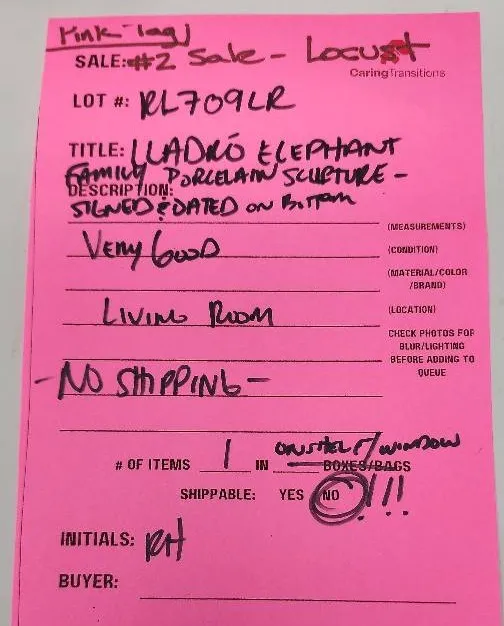 Pink Tag
SALE: #2 Sale - Locust
CaringTransitions
LOT #: RL709LR
TITLE: LLADRÓ ELEPHANT
FAMILY PORCELAIN SCULPTURE -
DESCRIPTION:
SIGNED & DATED ON BOTTOM
(MEASUREMENTS)
VERY GOOD (CONDITION)
(MATERIAL/COLOR
/BRAND)
LIVING ROOM (LOCATION)
CHECK PHOTOS FOR
BLUR/LIGHTING
BEFORE ADDING TO
QUEUE
- NO SHIPPING -
ON SHELF/WINDOW
# OF ITEMS 1 IN BOXES/BAGS
SHIPPABLE: YES NO !!!
INITIALS: RH
BUYER: